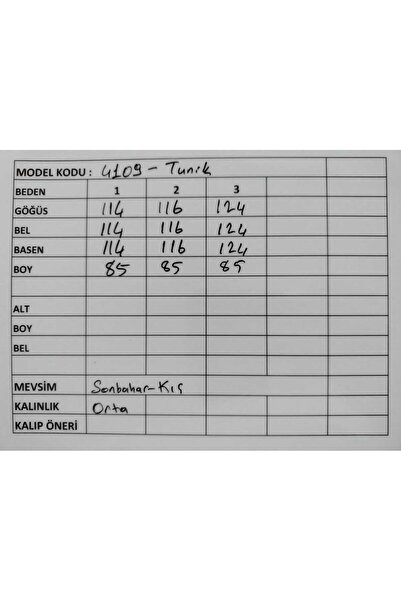 MODEL KODU : 4109 - Tunik
BEDEN 1 2 3
GÖĞÜS 114 116 124
BEL 114 116 124
BASEN 114 116 124
BOY 85 85 85
ALT
BOY
BEL
MEVSİM Sonbahar-Kış
KALINLIK Orta
KALIP ÖNERİ